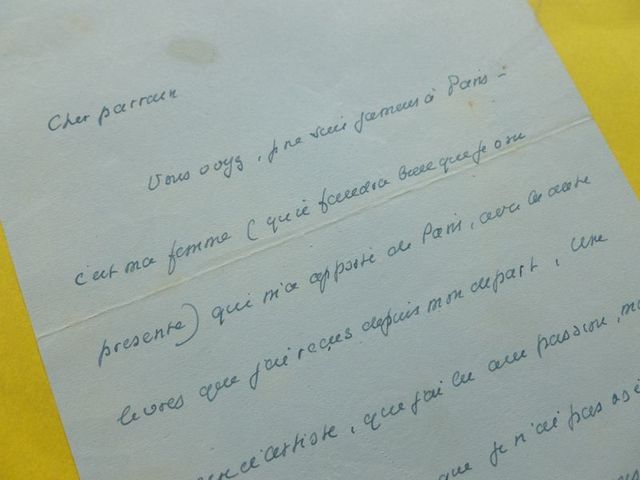 Cher parrain
Vous voyez, je ne suis jamais à Paris -
c'est ma femme (qu'il faudra bien que je vous
présente) qui m'a apporté de Paris, avec les autre
livres que j'ai reçus depuis mon départ, Une
d'artiste, que j'ai lu avec passion,
que je n'ai pas